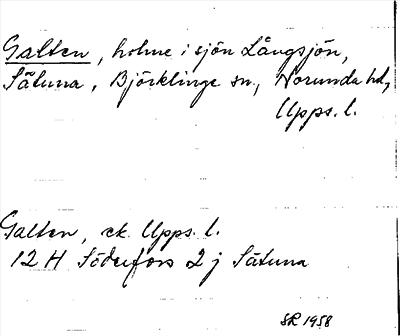 Galten, holme i sjön Långsjön,
Sätuna, Björklinge sn, Norunda hd,
Upps. l.
Galten, ek. Upps. l.
12 H Söderfors 2 j Sätuna
SR 1958